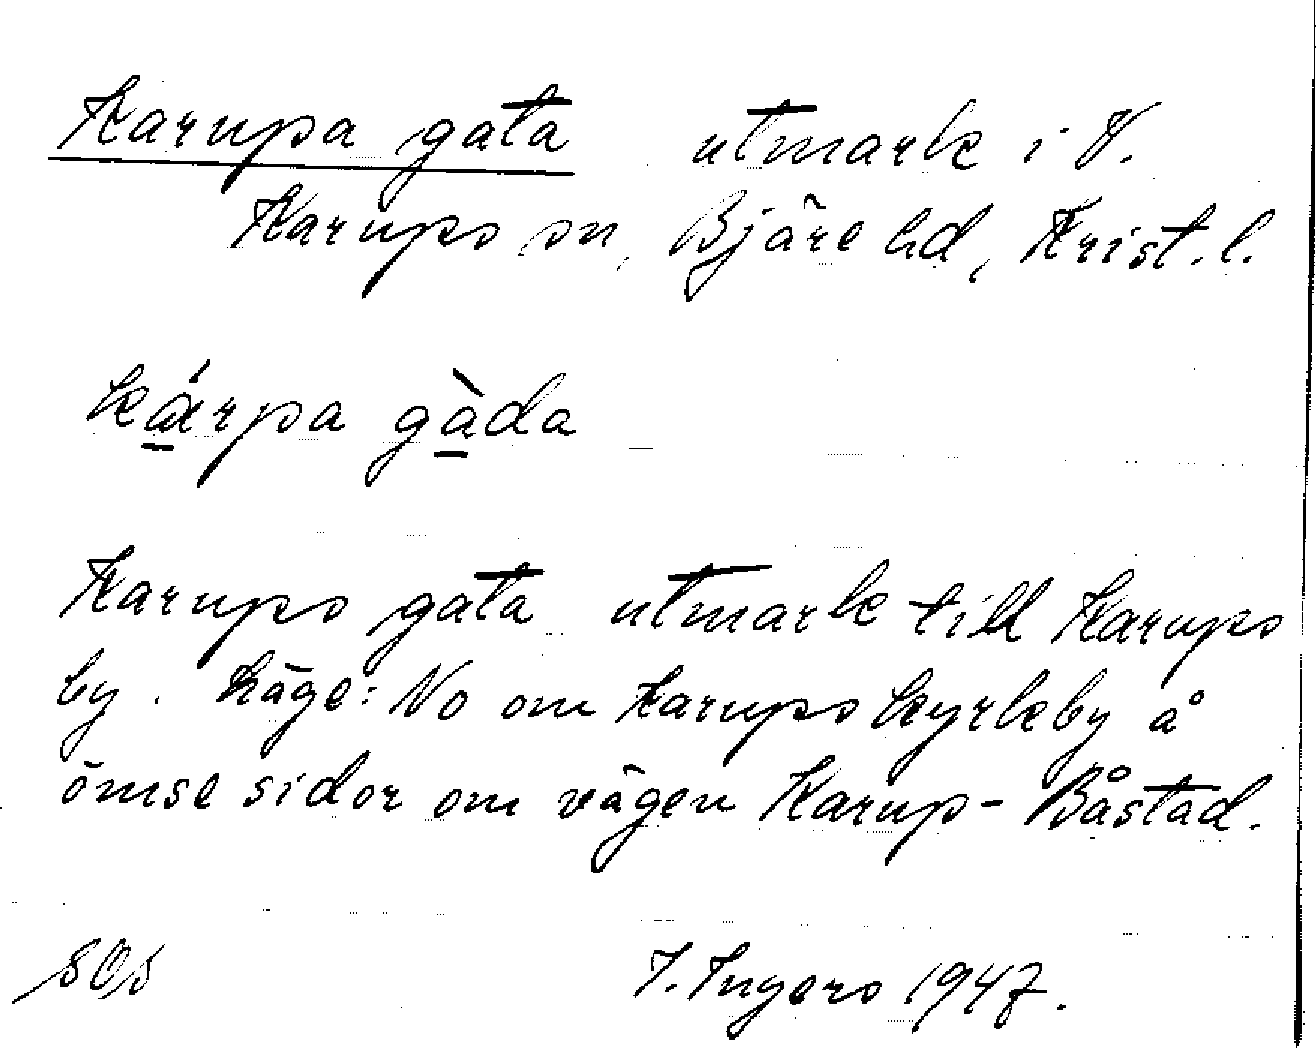 Karupa gata utmark i V.
Karups sn, Bjäre hd, Krist. l.
kárpa gàda
Karups gata utmark till Karups
by. Läge: No om Karups kyrkby å
ömse sidor om vägen Karup - Båstad.
SOS I. Ingers 1947.